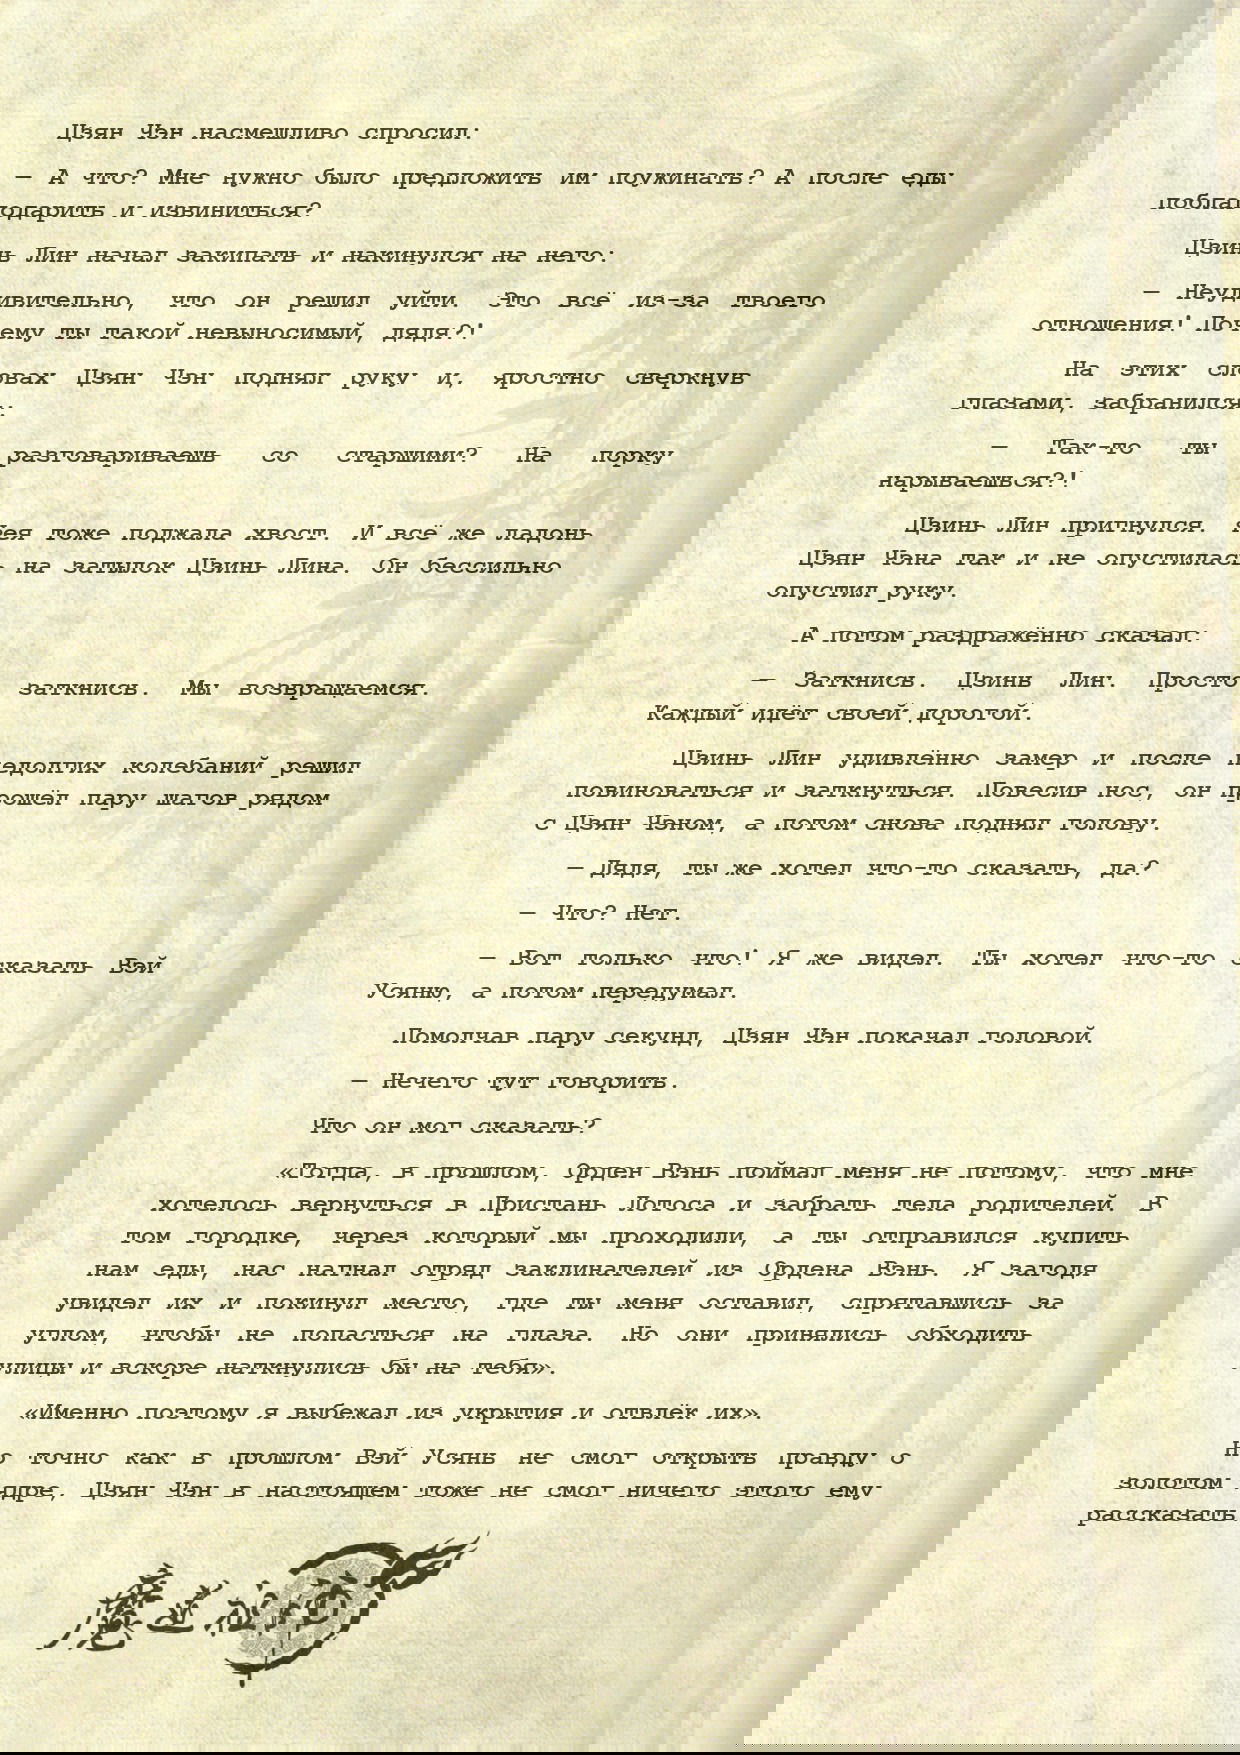 Цзян Чэн насмешливо спросил:
— А что? Мне нужно было предложить им поужинать? А после еды
поблагодарить и извиниться?
Цзинь Лин начал закипать и накинулся на него:
— Неудивительно, что он решил уйти. Это всё из-за твоего
отношения! Почему ты такой невыносимый, дядя?!
На этих словах Цзян Чэн поднял руку и, яростно сверкнув
глазами, забранился:
— Так-то ты разговариваешь со старшими? На порку
нарываешься?!
Цзинь Лин пригнулся. Фея тоже поджала хвост. И всё же ладонь
Цзян Чэна так и не опустилась на затылок Цзинь Лина. Он бессильно
опустил руку.
А потом раздражённо сказал:
— Заткнись. Цзинь Лин. Просто заткнись. Мы возвращаемся.
Каждый идёт своей дорогой.
Цзинь Лин удивлённо замер и после недолгих колебаний решил
повиноваться и заткнуться. Повесив нос, он прошёл пару шагов рядом
с Цзян Чэном, а потом снова поднял голову.
— Дядя, ты же хотел что-то сказать, да?
— Что? Нет.
— Вот только что! Я же видел. Ты хотел что-то сказать Вэй
Усяню, а потом передумал.
Помолчав пару секунд, Цзян Чэн покачал головой.
— Нечего тут говорить.
Что он мог сказать?
«Тогда, в прошлом, Орден Вэнь поймал меня не потому, что мне
хотелось вернуться в Пристань Лотоса и забрать тела родителей. В
том городке, через который мы проходили, а ты отправился купить
нам еды, нас нагнал отряд заклинателей из Ордена Вэнь. Я загодя
увидел их и покинул место, где ты меня оставил, спрятавшись за
углом, чтобы не попасться на глаза. Но они принялись обходить
улицы и вскоре наткнулись бы на тебя».
«Именно поэтому я выбежал из укрытия и отвлёк их».
Но точно как в прошлом Вэй Усянь не смог открыть правду о
золотом ядре, Цзян Чэн в настоящем тоже не смог ничего этого ему
рассказать.
魔道祖师